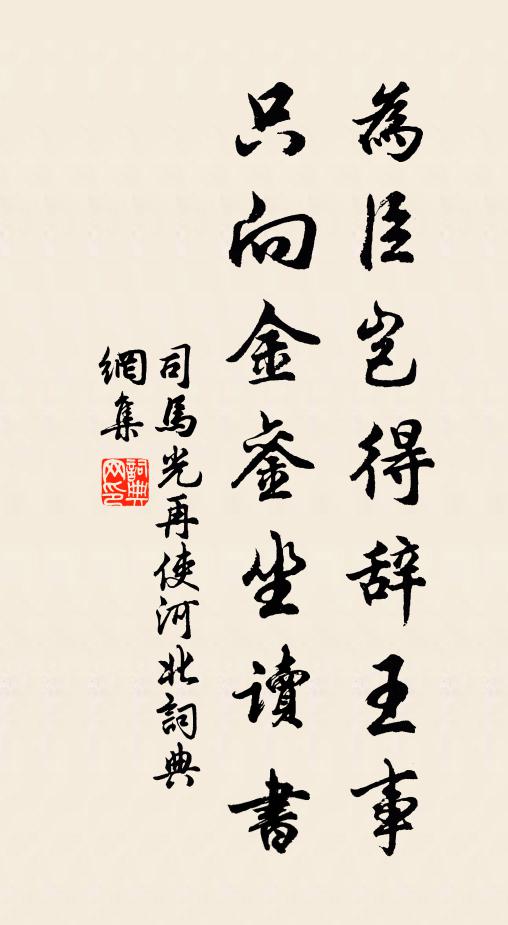 為臣岂得辞王事
只向金銮坐讀書
司馬光再使河北詞典
網集
詞典网印